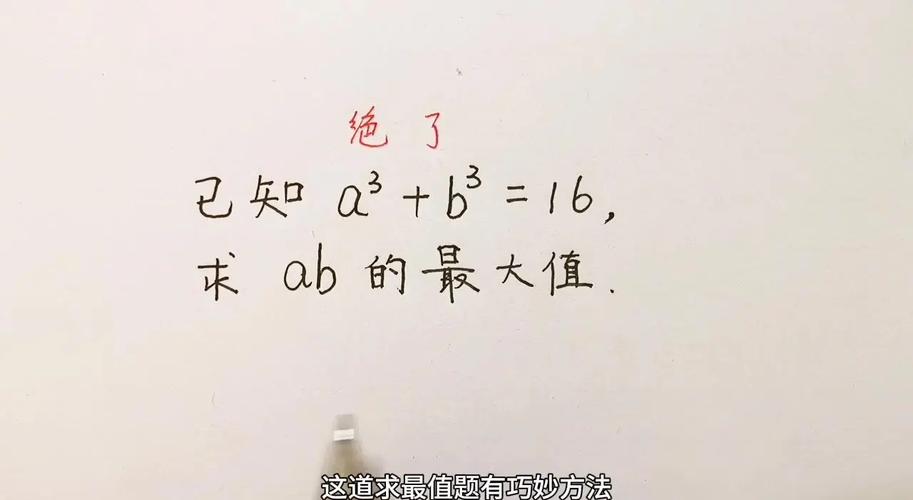 绝了
已知 a³+b³=16,
求 ab 的最大值.
这道求最值题有巧妙方法